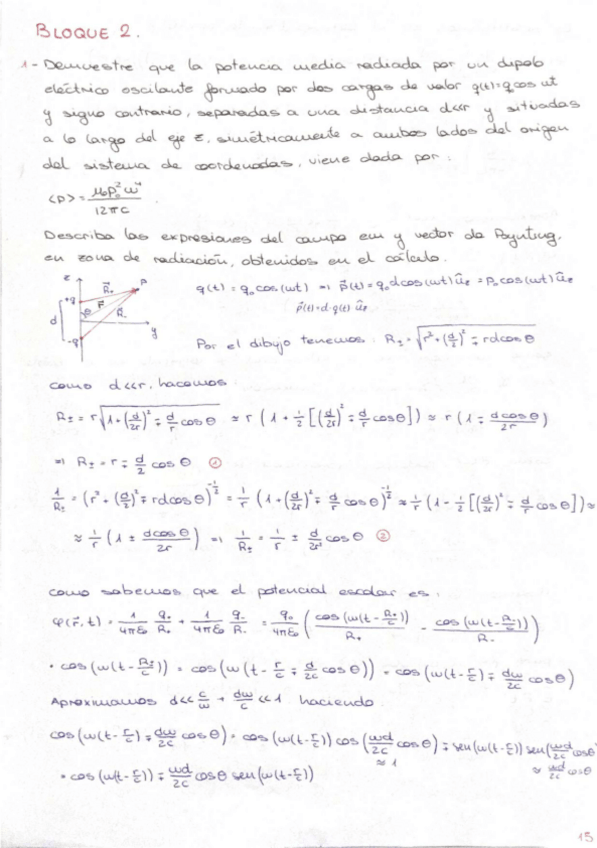 BLOQUE 2.
1- Demuestre que la potencia media radiada por un dipolo
eléctrico oscilante formado por dos cargas de valor q(t)=q₀cos ωt
y signo contrario, separadas a una distancia d<<r y situadas
a lo largo del eje z, simétricamente a ambos lados del origen
del sistema de coordenadas, viene dada por:
<P> = μ₀p₀²ω⁴ / 12πc
Describa las expresiones del campo em y vector de Poynting,
en zona de radiación, obtenidos en el cálculo.
z R₊ P
+q r
d θ R₋
y
-q
q(t) = q₀cos(ωt) ⇒ p⃗(t) = q₀dcos(ωt) û_z = p₀cos(ωt) û_z
p⃗(t)=d·q(t) û_z
Por el dibujo tenemos: R± = √(r² + (d/2)² ∓ rdcosθ)
como d<<r, hacemos:
R± = r√(1+(d/2r)² ∓ d/r cosθ) ≈ r(1 + 1/2[(d/2r)² ∓ d/r cosθ]) ≈ r(1 ∓ dcosθ/2r)
⇒ R± = r ∓ d/2 cosθ ①
1/R± = (r² + (d/2)² ∓ rdcosθ)^(-1/2) = 1/r (1+(d/2r)² ∓ d/r cosθ)^(-1/2) ≈ 1/r (1 - 1/2[(d/2r)² ∓ d/r cosθ]) ≈
≈ 1/r (1 ± dcosθ/2r) ⇒ 1/R± = 1/r ± d/2r² cosθ ②
como sabemos que el potencial escalar es:
φ(r⃗,t) = 1/4πε₀ q₊/R₊ + 1/4πε₀ q₋/R₋ = q₀/4πε₀ (cos(ω(t-R₊/c))/R₊ - cos(ω(t-R₋/c))/R₋)
· cos(ω(t-R±/c)) = cos(ω(t - r/c ∓ d/2c cosθ)) = cos(ω(t-r/c) ∓ dω/2c cosθ)
Aproximamos d<<c/ω → dω/c <<1 haciendo:
cos(ω(t-r/c) ∓ dω/2c cosθ) = cos(ω(t-r/c)) cos(ωd/2c cosθ) ∓ sen(ω(t-r/c)) sen(ωd/2c cosθ
≈ 1 ≈ ωd/2c cosθ
= cos(ω(t-r/c)) ∓ ωd/2c cosθ sen(ω(t-r/c))
15